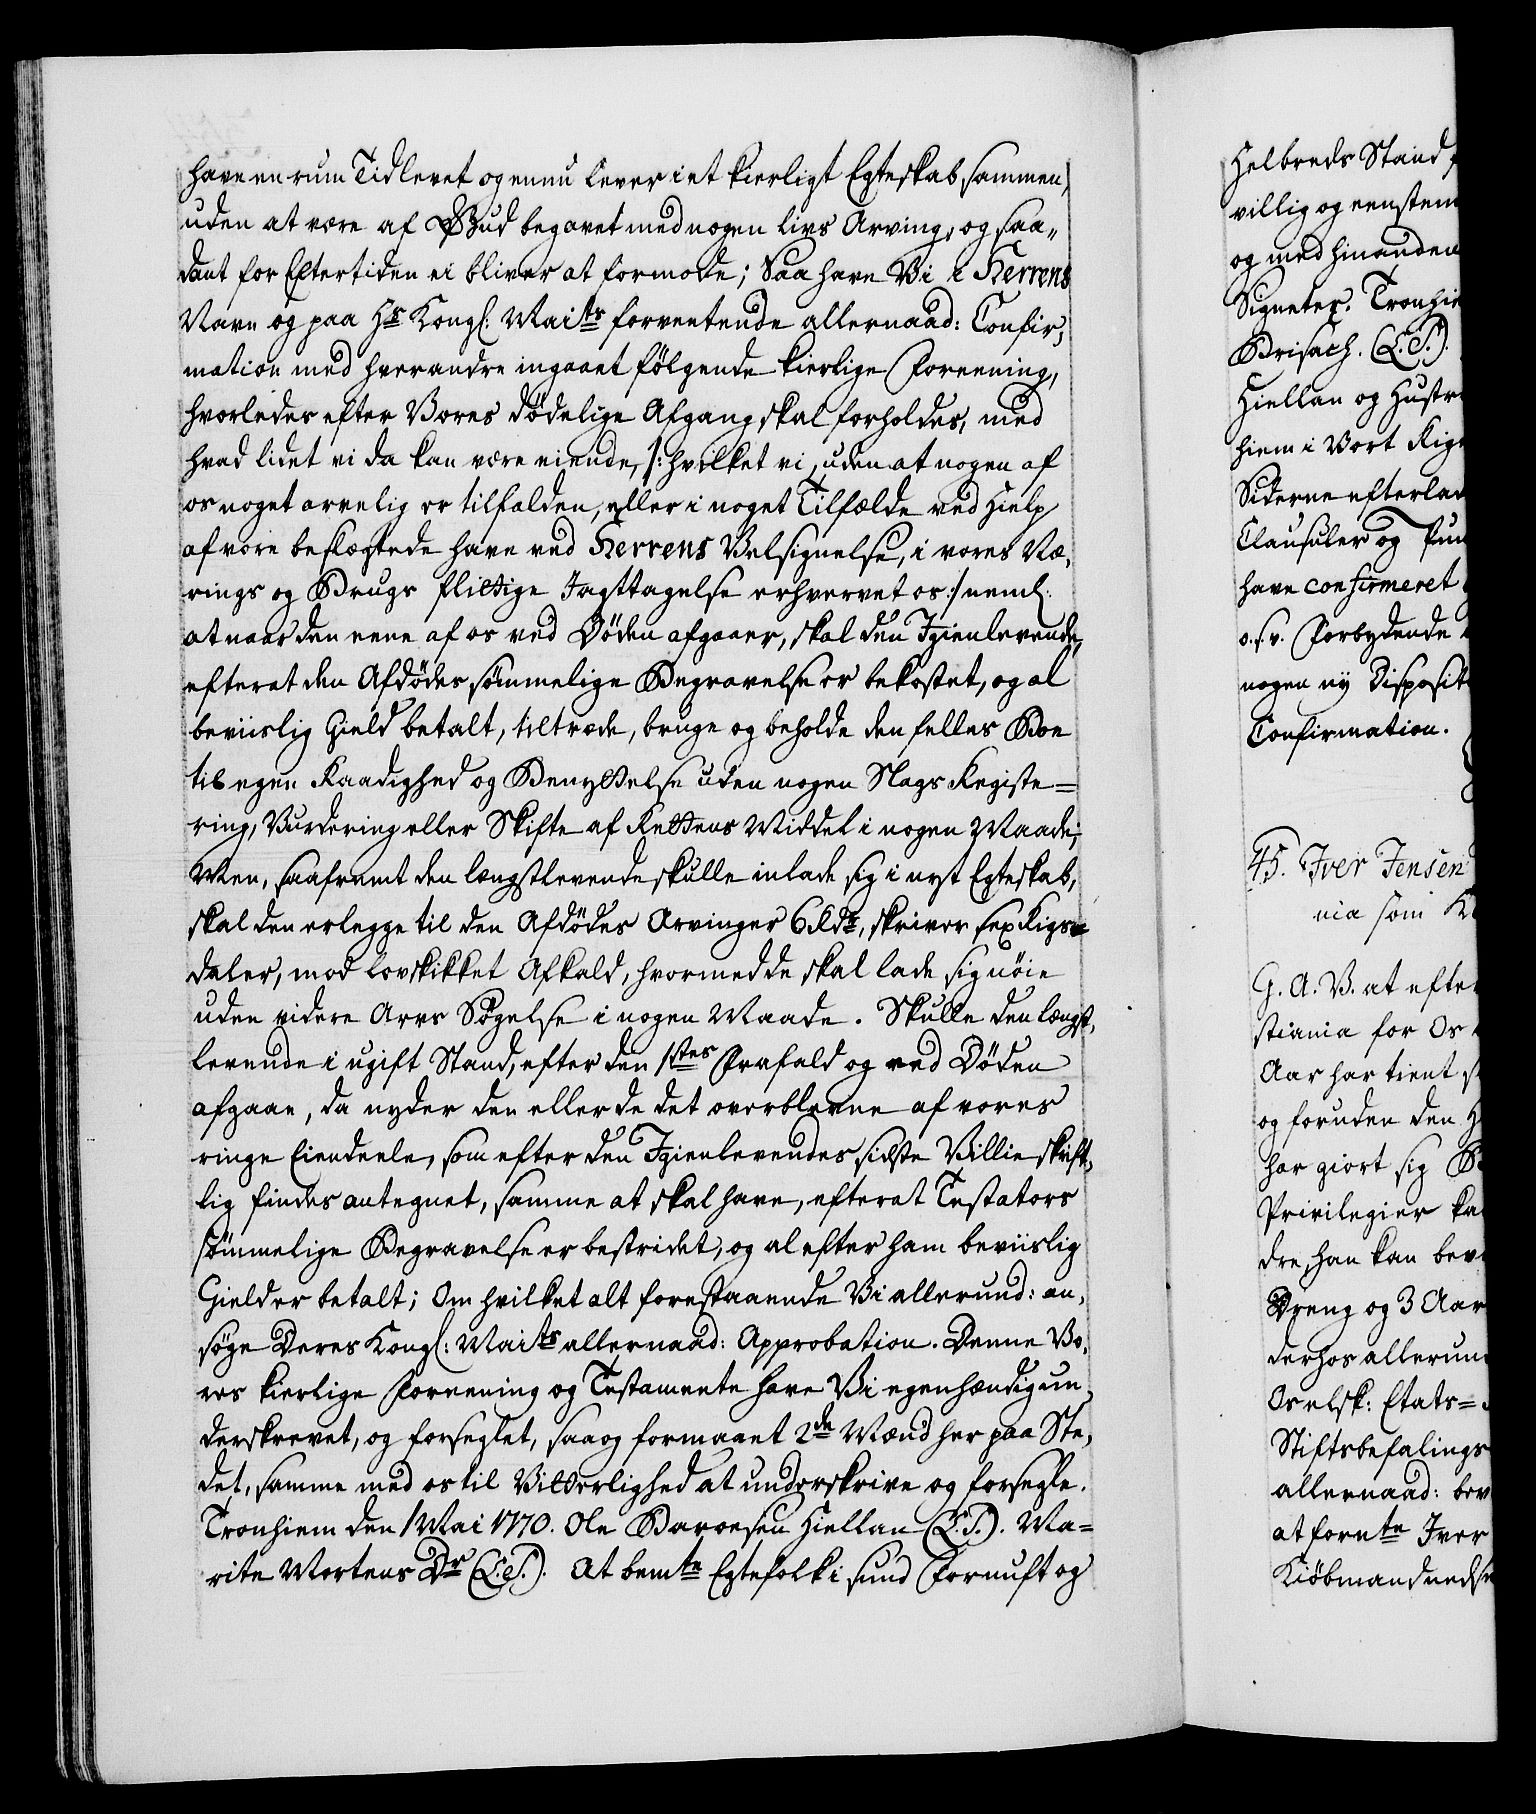 have en rum Tid levet og ennu lever i et kierligt Egteskab sammen,
uden at være af Gud begavet med nogen livs Arving, og saa„
dant for Eftertiden ei bliver at formode; Saa have Vi i Herrens
Navn og paa Hs Kongl: Maits forventende allernaad: Confir„
mation med hverandre ingaaet følgende kierlige Foreening,
hvorledes efter Vores dødelige Afgang skal forholdes, med
hvad lidet vi da kan være eiende, /: hvilket vi, uden at nogen af
os noget arvelig er tilfalden, eller i noget Tilfælde ved Hielp
af vore beslægtede have ved Herrens Velsignelse, i vores Næ„
rings og Brugs flittige Iagttagelse erhvervet os :/ neml:
at naar den eene af os ved Døden afgaaer, skal den Igienlevende,
efterat den Afdødes sømmelige Begravelse er bekostet, og al
beviislig Gield betalt, tiltræde, bruge og beholde den felles Boe
til egen Raadighed og Benyttelse uden nogen Slags Registe=
ring, Vurdering eller Skifte af Rettens Middel i nogen Maade;
Men, saafremt den længstlevende skulle inlade sig i nyt Egteskab,
skal den erlegge til den Afdødes Arvinger 6 Rdr, skriver sex Rigs=
daler, mod lovskikket Afkald, hvormed de skal lade sig nøie
uden videre Arvs Søgelse i nogen Maade. Skulle den længst„
levende i ugift Stand, efter den 1stes Frafald og ved Døden
afgaae, da nyder den eller de det overblevne af vores
ringe Eiendeele, som efter den Igienlevendes sidste Villie skrift„
lig findes antegnet, samme at skal have, efterat Testators
sømmelige Begravelse er bestridet, og al efter ham beviislig
Gield er betalt; Om hvilket alt forestaaende Vi allerund: an„
søge Deres Kongl: Maits allernaad: Approbation. Denne Vo„
res kierlige Foreening og Testamente have Vi egenhændig un„
derskrevet, og forseglet, saa og formaaet 2de Mænd her paa Ste„
det, samme med os til Vitterlighed at underskrive og forsegle.
Tronhiem den 1 Mai 1770. Ole Baroesen Hiellan (L.S.). Ma=
rite Mortens Dr (L.S.). At bemte Egtefolk i sund Fornuft og
Helbreds Stand
villig og eenstem
og med hinanden
Signeter. Tronhie
Brisach. (L.S.).
Hiellan og Hustr
hiem i Vort Rige
Siderne efterlad
Clausuler og Pun
have confirmeret
o.s.v. Forbydende
nogen ny Disposit
Confirmation.
45. Iver Jensen
nia som K
G. A. V. at efter
stiania for Os
Aar har tient
og foruden den
har giort sig
Privilegier ka
dre, han kan bev
Dreng og 3 Aar
derhos allerun
Os elsk: Etats=
Stiftsbefalings
allernaad: bev
at fornte Iver
Kiøbmand neds